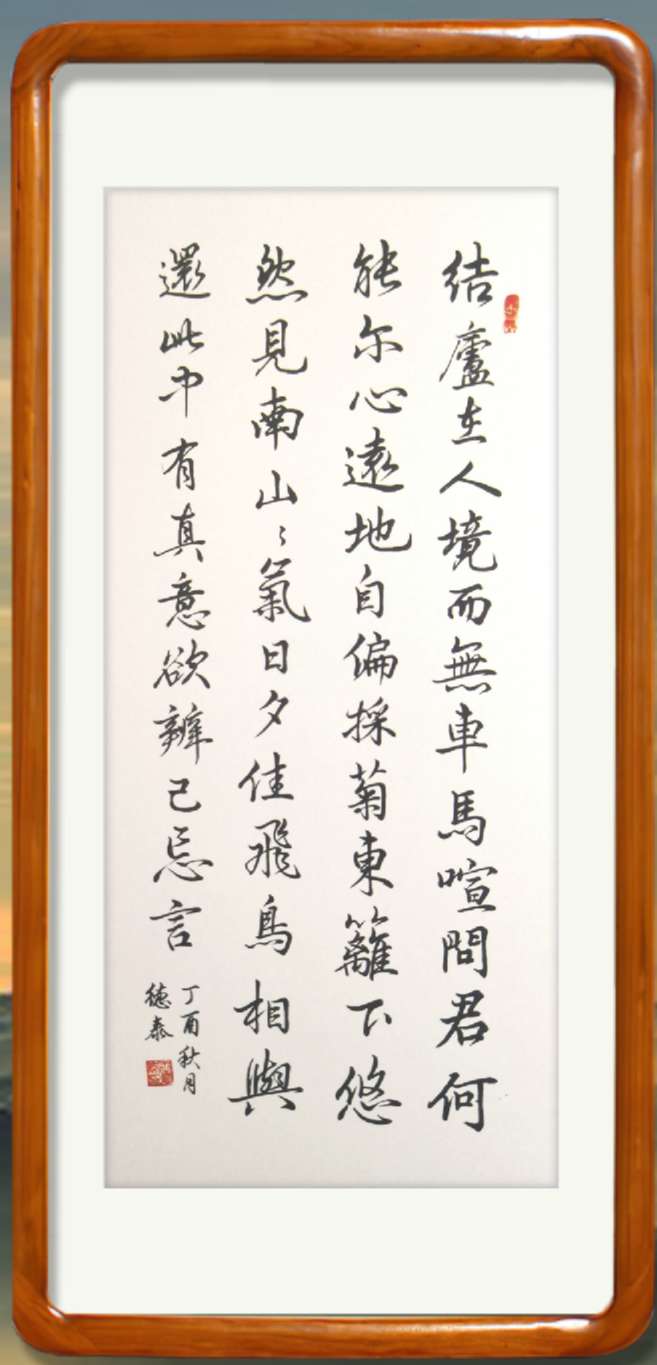 结廬在人境而無車馬喧問君何
能尔心遠地自偏採菊東籬下悠
然見南山〻氣日夕佳飛鳥相與
還此中有真意欲辨已忘言
丁酉秋月
德泰